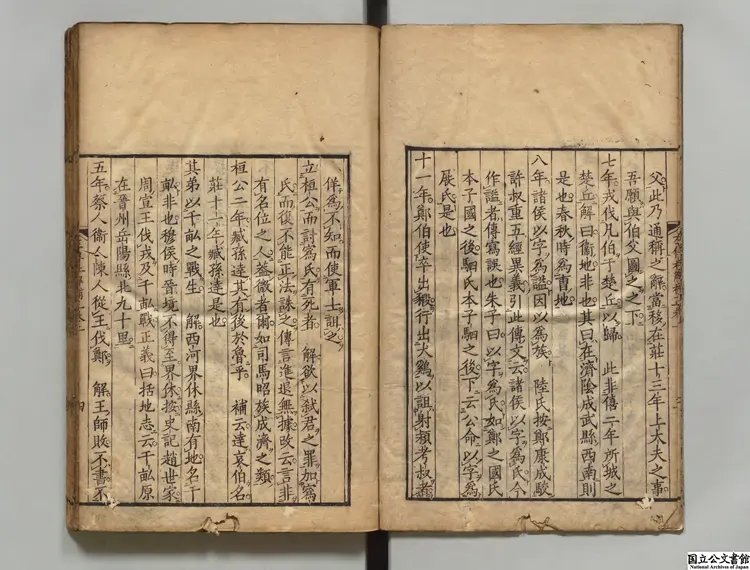 父此乃通稱之辭當移在莊十三年上大夫之事
吾願與伯父圖之之下
七年戎伐凡伯于楚丘以歸　此非僖二年所城之
楚丘解曰衞地非也其曰在濟陰成武縣西南則
是也春秋時爲曹地
八年諸侯以字爲謚因以爲族　陸氏按鄭康成駁
許叔重五經異義引此傳文云諸侯以字爲氏今
作謚者傳寫誤也朱子曰以字爲氏如鄭之國氏
本子國之後駟氏本子駟之後下云公命以字爲
展氏是也
十一年鄭伯使卒出豭行出犬鷄以詛射潁考叔者
四
佯爲不知而使軍士詛之
立桓公而討寪氏有死者　解欲以弒君之罪加寪
氏而復不能正法誅之傳言進退無據改云言非
有名位之人蓋微者爾如司馬昭族成濟之類
桓公二年臧孫達其有後於魯乎　補云達哀伯名
莊十一年臧孫達是也
其弟以千畝之戰生　解西河界休縣南有地名千
畝非也穆侯時晉境不得至界休按史記趙世家
周宣王伐戎及千畝戰正義曰括地志云千畝原
在晉州岳陽縣北九十里
五年蔡人衞人陳人從王伐鄭　解王師敗不書不
国立公文書館
National Archives of Japan